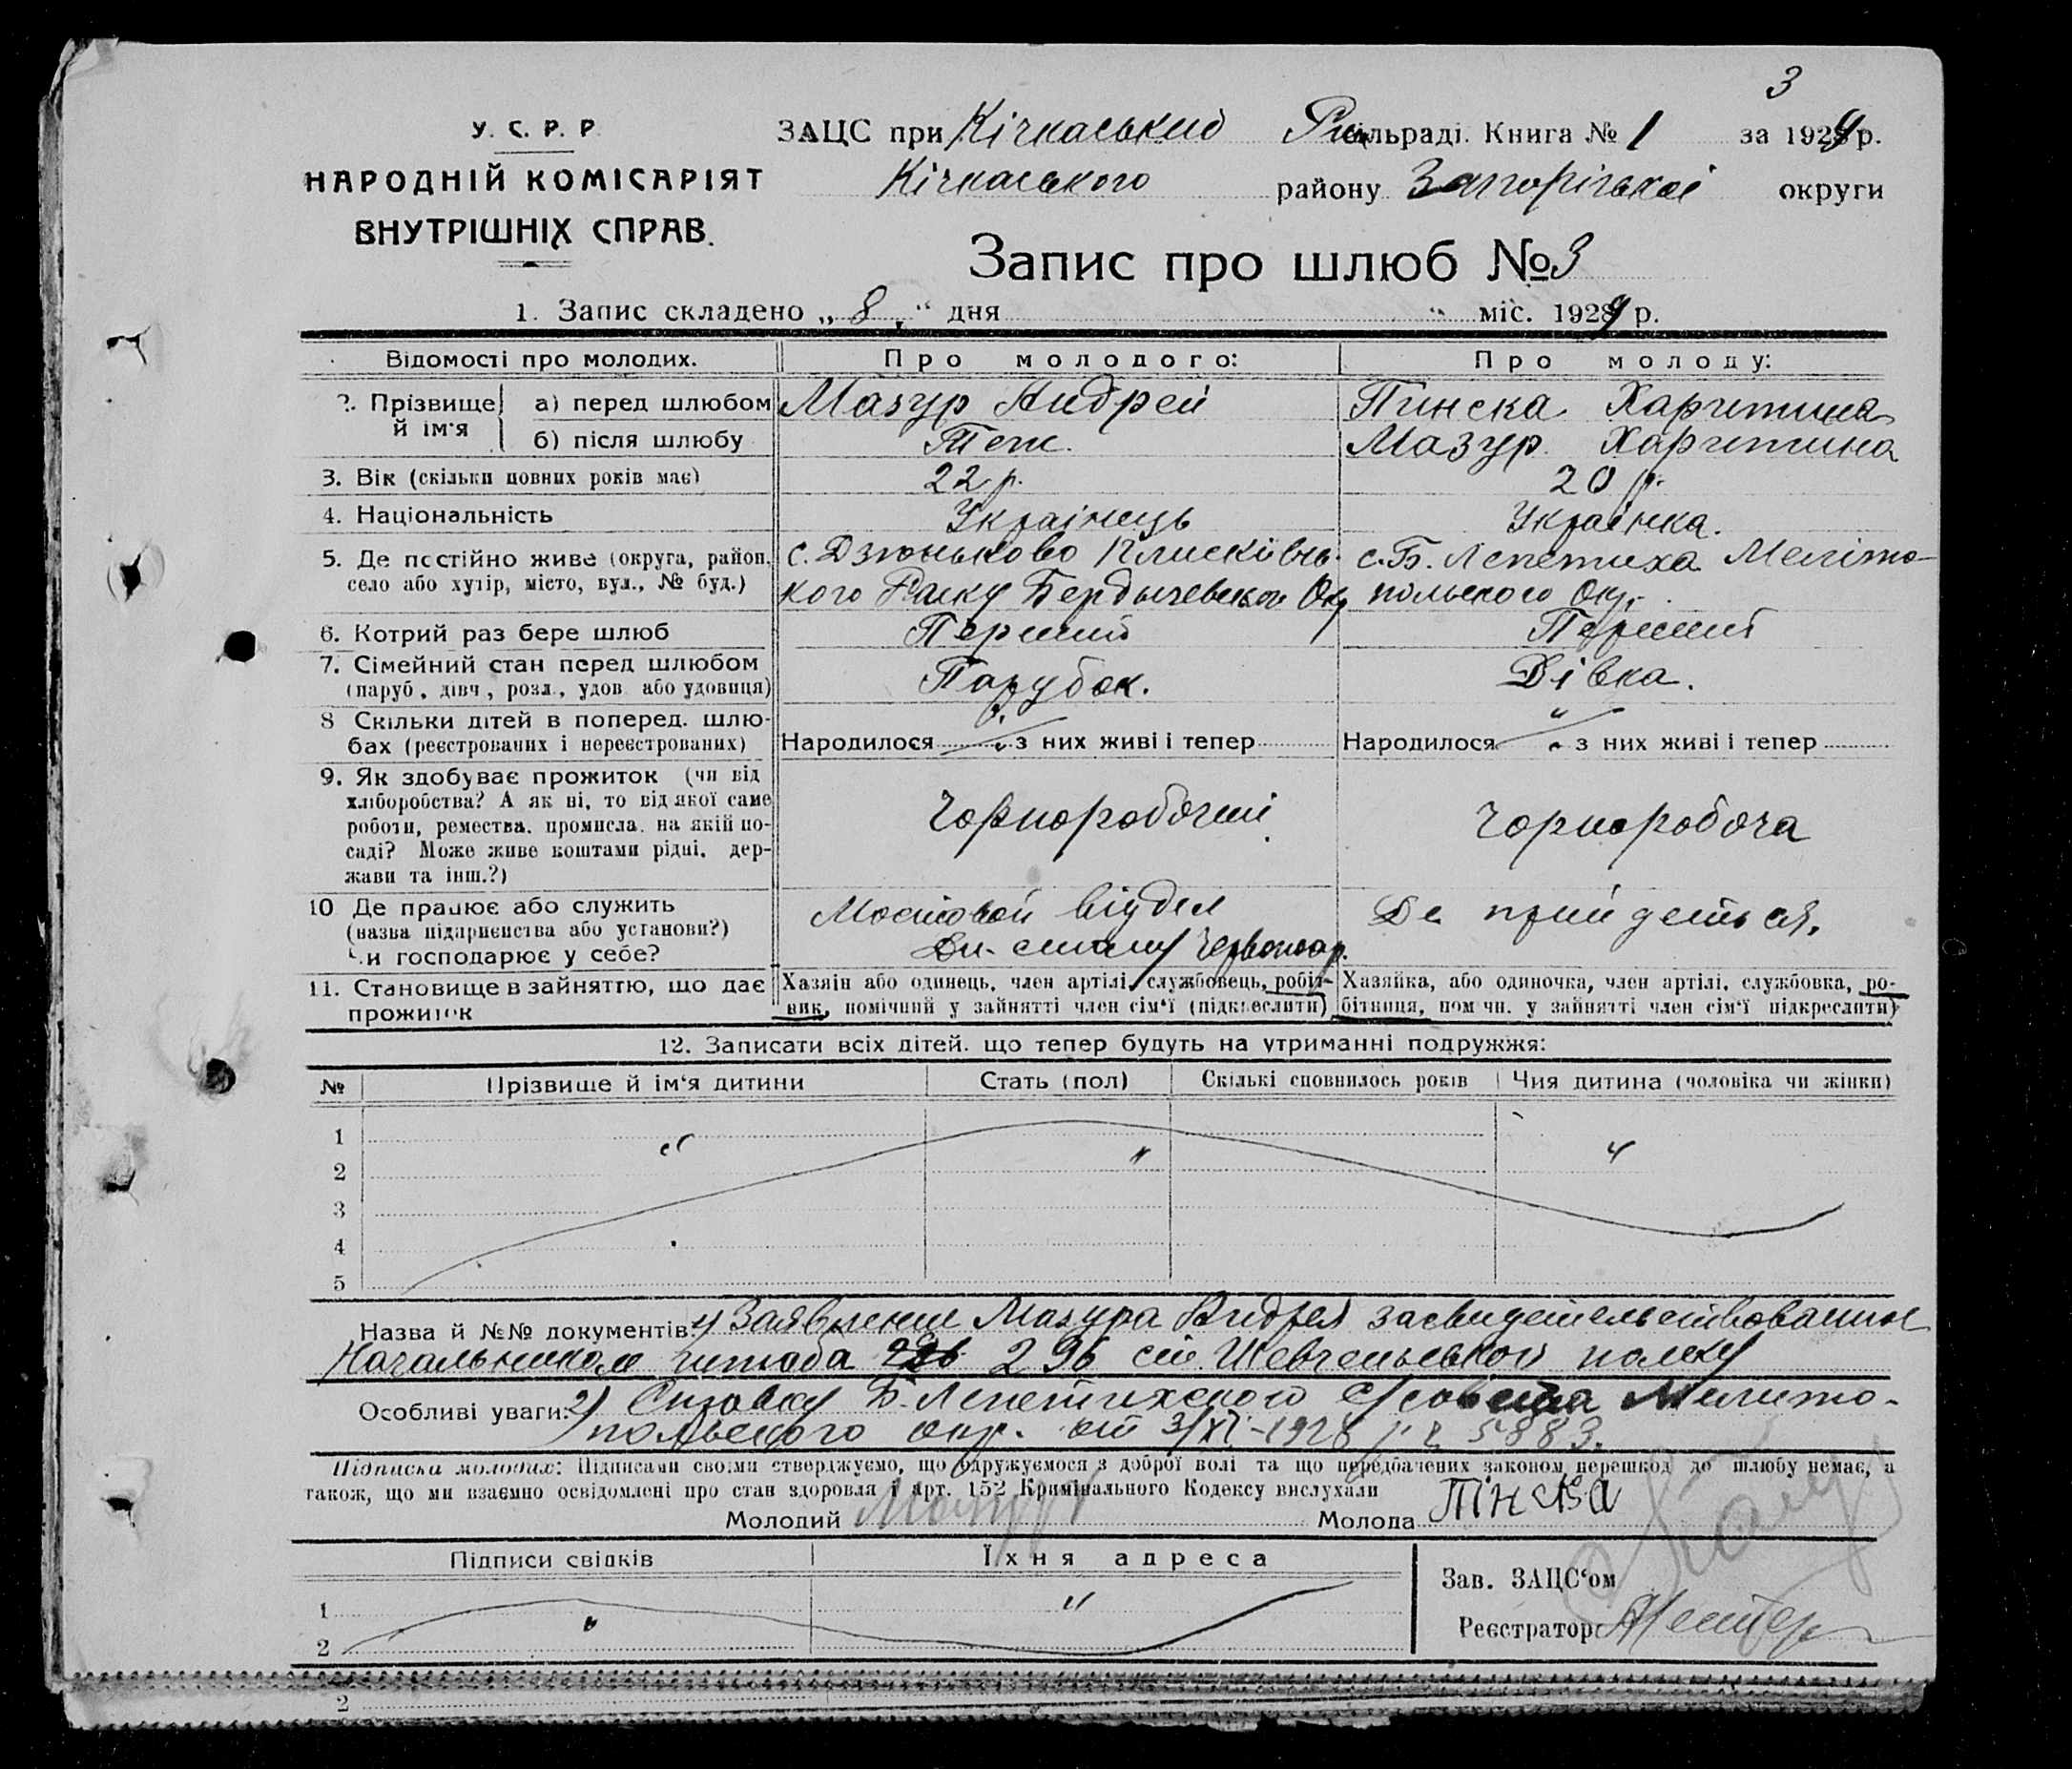 3
У. С. Р. Р.
НАРОДНІЙ КОМІСАРІЯТ
ВНУТРІШНІХ СПРАВ.
ЗАЦС при Кічкаський сільраді. Книга № 1 за 1929 р.
Кічкаського району Запорізької округи
Запис про шлюб № 3
1. Запис складено „ 8 “ дня „ міс. 1929 р.
Відомості про молодих. Про молодого: Про молоду:
2. Прізвище й ім'я а) перед шлюбом Мазур Андрей Пинска Харитина
б) після шлюбу Теж. Мазур Харитина
3. Вік (скільки повних років має) 22 р. 20 р.
4. Національність Українець Українка.
5. Де постійно живе (округа, район, с. Дзюньково Плисківсь- с. Б. Лепетиха Меліто-
село або хутір, місто, вул., № буд.) кого Району Бердычевской Окр польского Окр.
6. Котрий раз бере шлюб Перший Перший
7. Сімейний стан перед шлюбом Парубок. Дівка.
(паруб., дівч., розл., удов. або удовиця)
8 Скільки дітей в поперед. шлю-
бах (реєстрованих і нереєстрованих) Народилося „ з них живі і тепер Народилося „ з них живі і тепер
9. Як здобуває прожиток (чи від
хліборобства? А як ні, то від якої саме
роботи, ремества, промисла, на якій по- Чорноробочий Чорноробоча
саді? Може живе коштами рідні, дер-
жави та інш.?)
10 Де працює або служить Мостовой відділ Де прийдеться.
(назва підприємства або установи?)
Чи господарює у себе?
11. Становище в зайняттю, що дає Хазяїн або одинець, член артілі, службовець, робіт- Хазяйка, або одиночка, член артілі, службовка, ро-
прожиток ник, помічний у зайнятті член сім'ї (підкреслити) бітниця, помічн. у зайнятті член сім'ї підкреслити)
12. Записати всіх дітей, що тепер будуть на утриманні подружжя:
№ Прізвище й ім'я дитини Стать (пол) Скількі сповнилось років Чия дитина (чоловіка чи жінки)
1
2
3
4
5
Назва й №№ документів: 1) Заявление Мазура Андрея засвидетельствованное
Начальником штаба 296 ст. Шевченьевской полку
Особливі уваги: 2) Справку Б. Лепетихского с/совета Мелито-
польского окр. от 3/XI-1928 р. № 5883.
Підписка молодих: Підписами своїми стверджуємо, що одружуємося з доброї волі та що передбачених законом перешкод до шлюбу немає, а
також, що ми взаємно освідомлені про стан здоровля і арт. 152 Кримінального Кодексу вислухали
Молодий Мазур Молода Пінска
Підписи свідків Їхня адреса
Зав. ЗАЦС'ом
1
Реєстратор
2
2